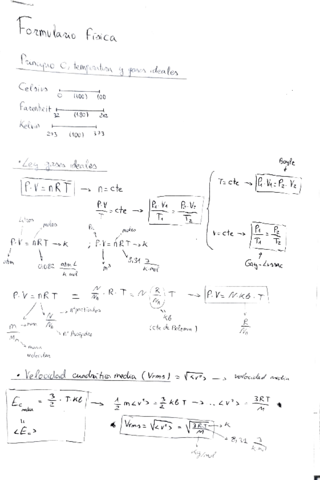 Formulario Física
Principio 0, temperatura y gases ideales
Celsius 0 (100) 100
Farenheit 32 (180) 212
Kelvin 273 (100) 373
• Ley gases ideales
P·V = nRT → n = cte
P·V/T = cte → P₁·V₁/T₁ = P₂·V₂/T₂
T = cte → P₁·V₁ = P₂·V₂
Boyle
V = cte → P₁/T₁ = P₂/T₂
Gay-Lussac
litros moles
P·V = nRT → K ; P·V = nRT → K
atm 0,082 atm·L/K·mol 8.31 J/K·mol
P·V = nRT = N/Nₐ · R · T = N (R/Nₐ) T → P·V = N·kB·T
m/M N/Nₐ nº partículas
kB R/Nₐ
masa molecular
• Velocidad cuadrática media (Vrms) = √<v²> → velocidad media
Ec media = 3/2 · T·kB → 1/2 m<v²> = 3/2 kB T → <v²> = 3RT/M
<Ec>
Vrms = √<v²> = √3RT/M → K
8.31 J/K·mol
kg/mol